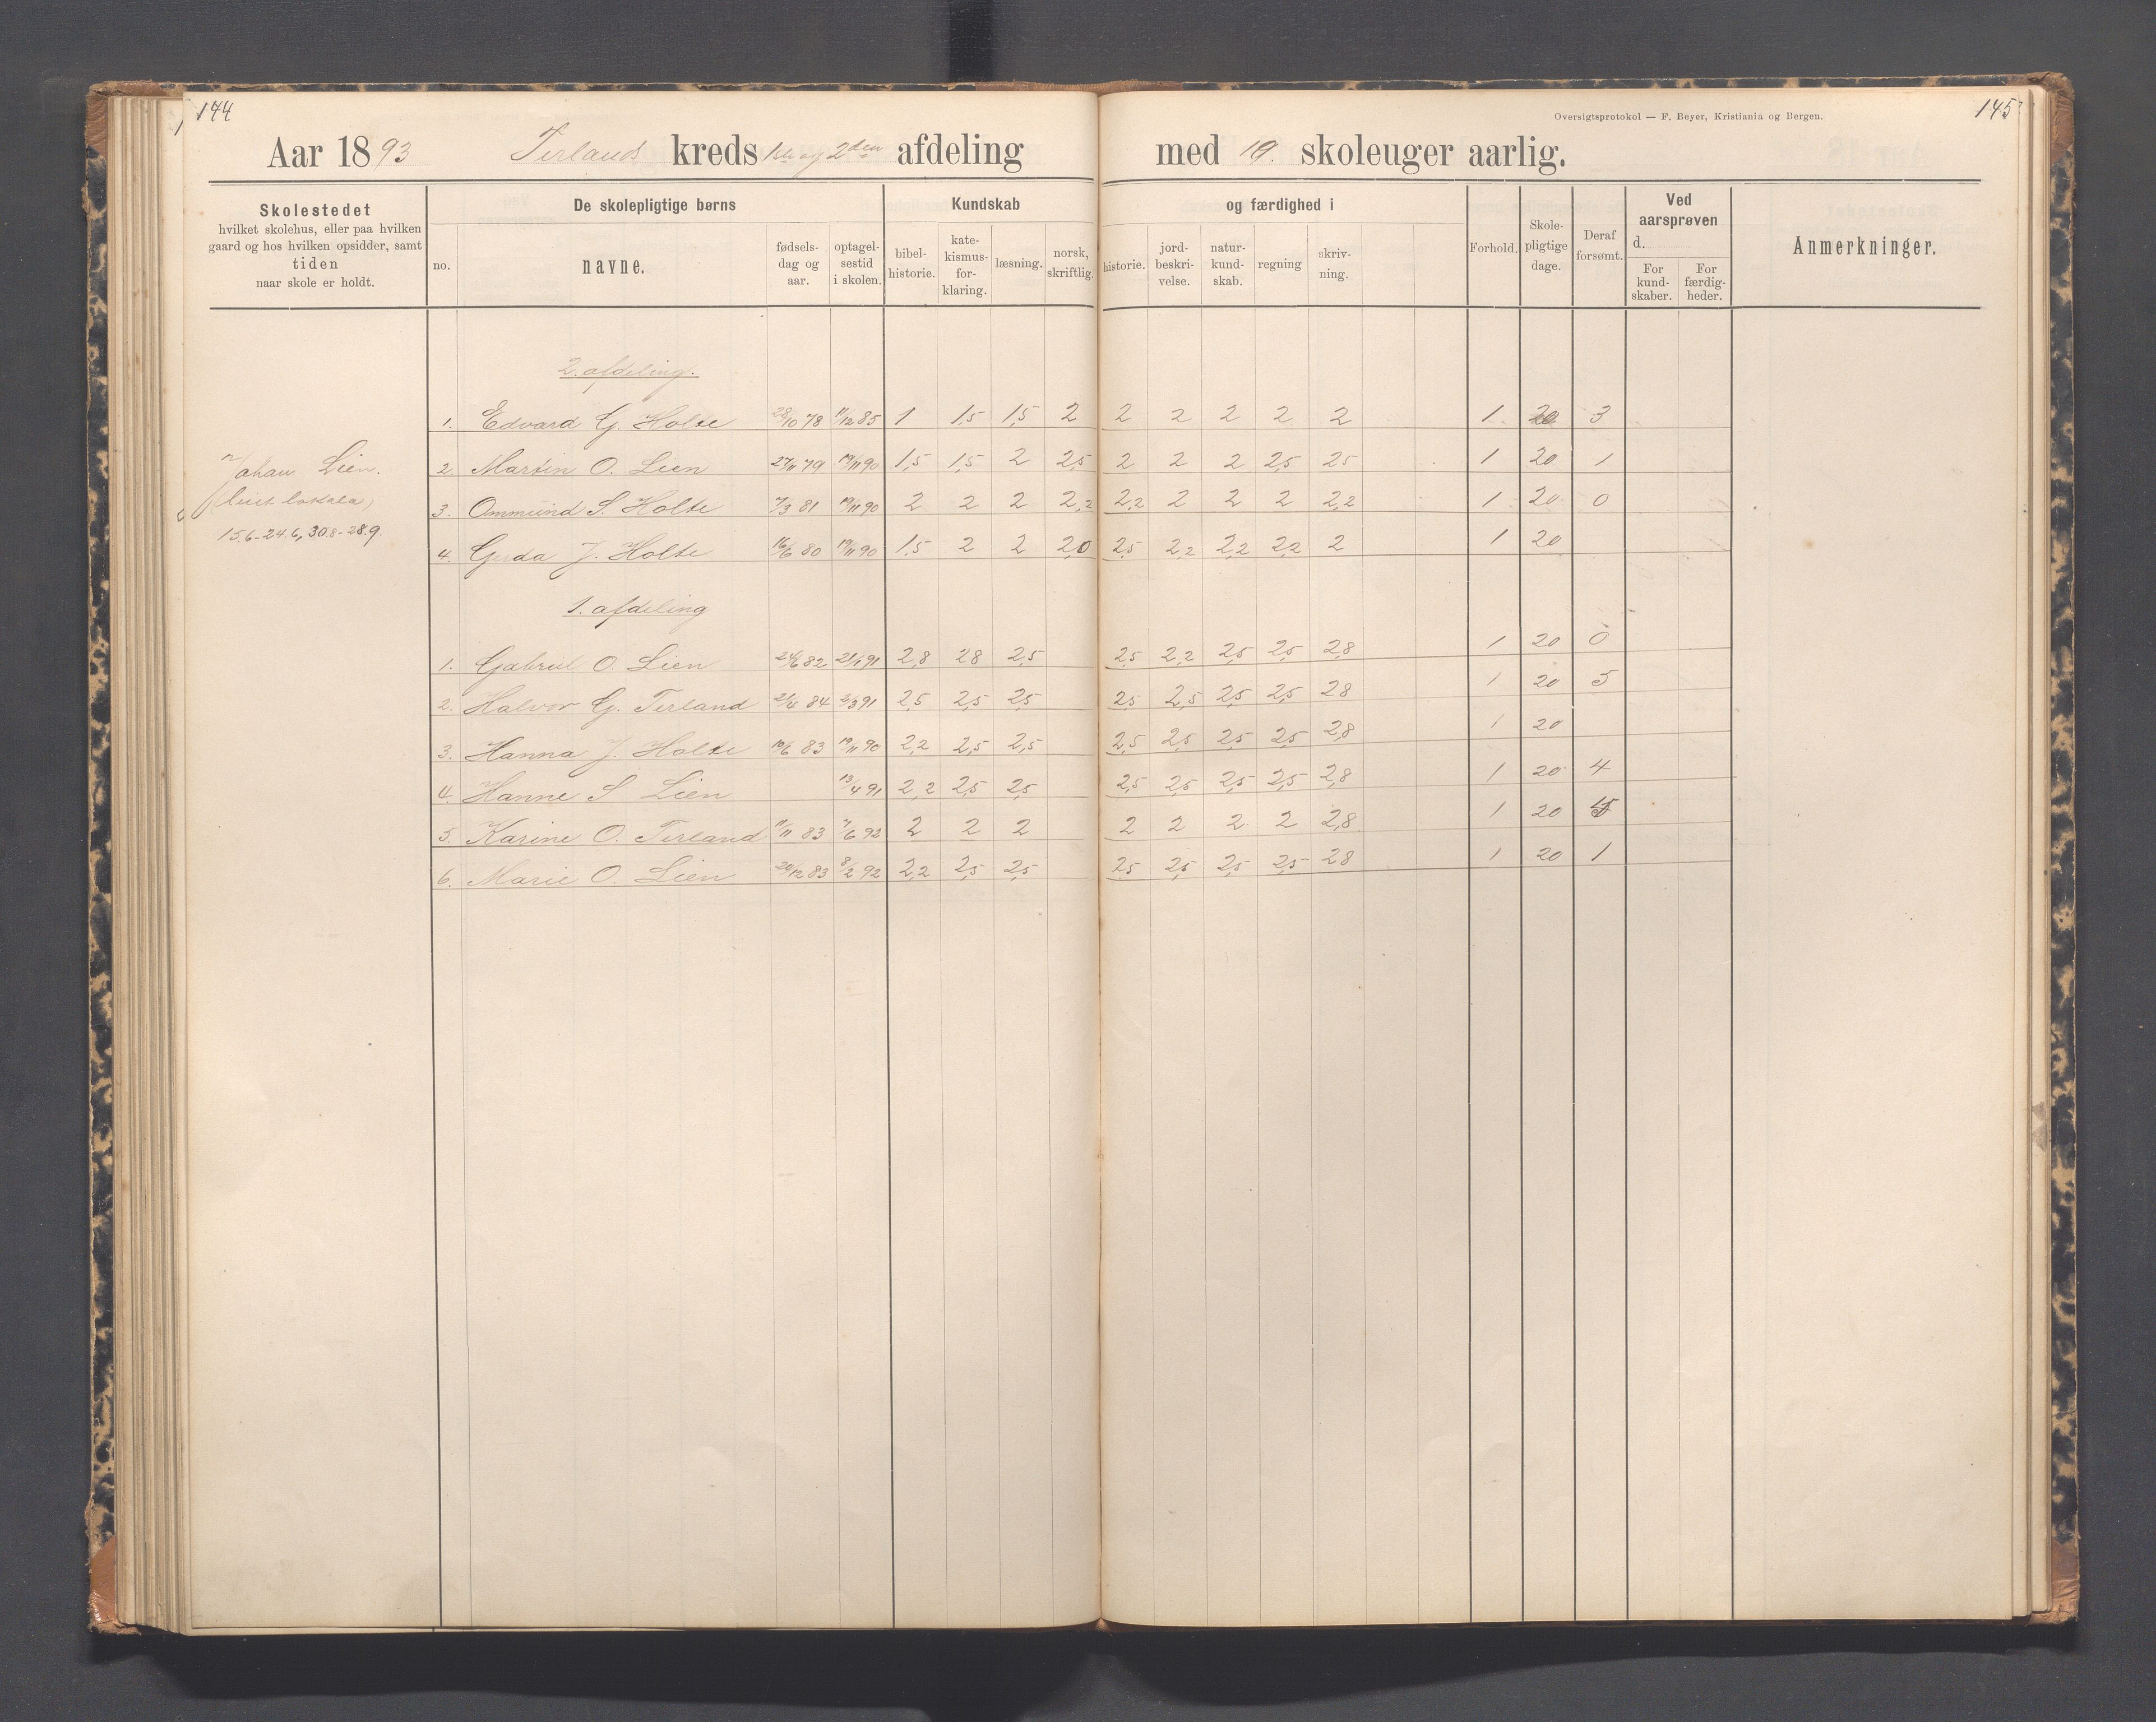 144
145
Oversigtsprotokol — F. Beyer, Kristiania og Bergen.
Aar 1893 Tirlands kreds 1ste og 2den afdeling med 19. skoleuger aarlig.
Skolestedet
hvilket skolehus, eller paa hvilken
gaard og hos hvilken opsidder, samt
tiden
naar skole er holdt.
De skolepligtige børns
no.
navne.
fødsels-
dag og
aar.
optagel-
sestid
i skolen.
Kundskab og færdighed i
bibel-
historie.
kate-
kismus-
for-
klaring.
læsning.
norsk,
skriftlig.
historie.
jord-
beskri-
velse.
natur-
kund-
skab.
regning
skriv-
ning.
Forhold.
Skole-
pligtige
dage.
Deraf
forsømt.
Ved
aarsprøven
d.
For
kund-
skaber.
For
færdig-
heder.
Anmerkninger.
2. afdeling.
1. Edvard G. Holte 28/10 78 11/12 85 1 1,5 1,5 2 2 2 2 2 2 1 20 3
Johan Lien.
2. Martin O. Lien 27/11 79 19/11 90 1,5 1,5 2 2,5 2 2 2 2,5 2,5 1 20 1
(leiet lokale)
3. Ommund S. Holte 7/3 81 19/11 90 2 2 2 2,2 2,2 2 2 2 2,2 1 20 0
15.6-24.6, 30.8-28.9.
4. Gerda J. Holte 16/6 80 19/11 90 1,5 2 2 2,0 2,5 2,2 2,2 2,2 2 1 20
1. afdeling
1. Gabriel O. Lien 24/6 82 21/1 91 2,8 2,8 2,5 2,5 2,2 2,5 2,5 2,8 1 20 0
2. Halvor G. Tirland 2/4 84 2/3 91 2,5 2,5 2,5 2,5 2,5 2,5 2,5 2,8 1 20 5
3. Hanna J. Holte 10/6 83 19/11 90 2,2 2,5 2,5 2,5 2,5 2,5 2,5 2,8 1 20
4. Hanne S Lien 13/4 91 2,2 2,5 2,5 2,5 2,5 2,5 2,5 2,8 1 20 4
5. Karine O. Tirland 11/11 83 7/6 92 2 2 2 2 2 2 2 2,8 1 20
6. Marie O. Lien 20/12 83 8/2 92 2,2 2,5 2,5 2,5 2,5 2,5 2,5 2,8 1 20 1